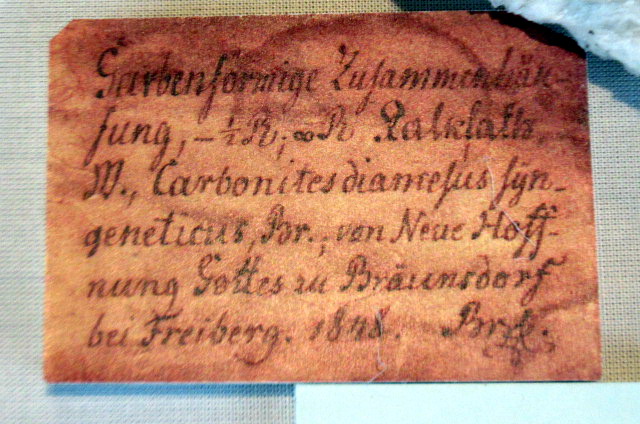 Garbenförmige Zusammenhäu-
fung, – ½ R; ∞ R Kalksalts,
W., Carbonites diamesus syn-
geneticus, Br., von Neue Hoff-
nung Gottes zu Bräunsdorf
bei Freiberg. 1848.